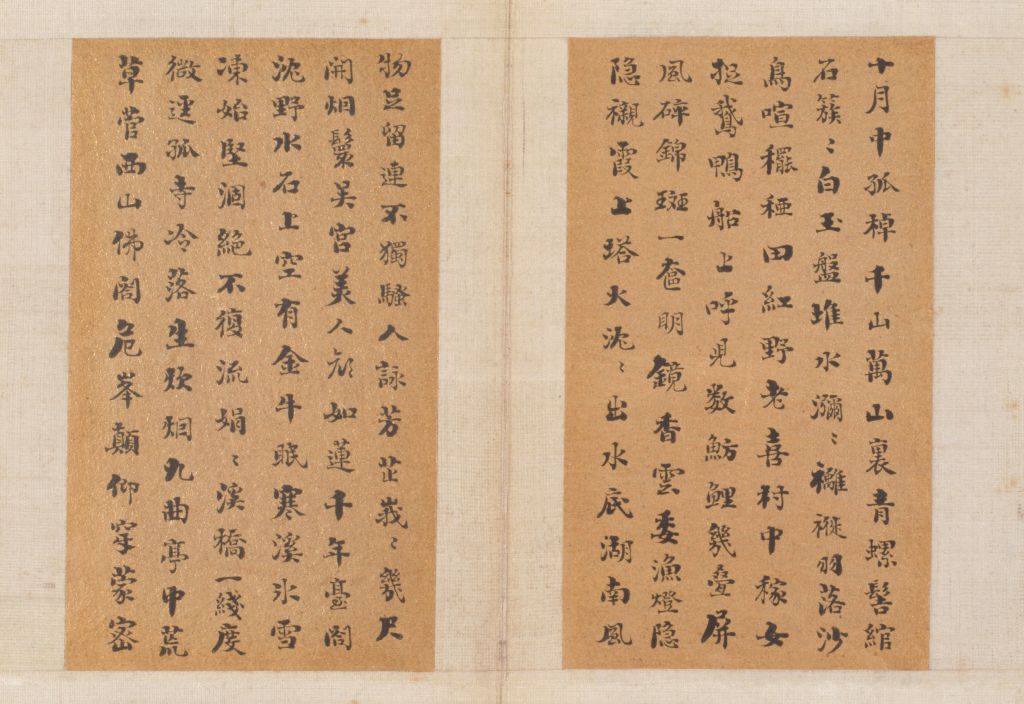 十月中孤棹千山萬山裏青螺髻綰
石簇〻白玉盤堆水瀰〻襹褷羽落沙
鳥喧䆉稏田紅野老喜村中稼女
捉鵞鴨船上呼児数魴鯉幾疊屏
風碎錦斑一奩明鏡香雲委漁燈隐
隐襯霞上塔火沈〻出水底湖南風
物足留連不獨騷人詠芳芷峩〻幾尺
開烟鬟吴宫美人顔如蓮千年臺閣
沈野水石上空有金牛眠寒溪氷雪
凍始堅涸絶不復流娟〻溪橋一綫度
微逕孤寺冷落生炊烟九曲亭中荒
草菅西山佛閣危峯顛仰穿蒙密